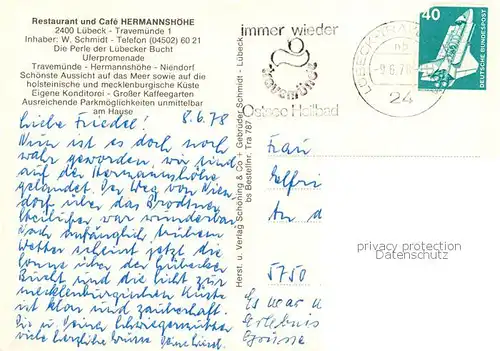 Restaurant und Café HERMANNSHÖHE
2400 Lübeck - Travemünde 1
Inhaber: W. Schmidt - Telefon (04502) 60 21
Die Perle der Lübecker Bucht
Uferpromenade
Travemünde - Hermannshöhe - Niendorf
Schönste Aussicht auf das Meer sowie auf die
holsteinische und mecklenburgische Küste
Eigene Konditorei - Großer Kaffeegarten
Ausreichende Parkmöglichkeiten unmittelbar
am Hause
Liebe Friedel! 8.6.78
Nun ist es doch noch
wahr geworden, wir sind
auf der Hermannshöhe
gelandet. Der Weg von Nien
dorf über das Brodtner
Steilufer war wunderbar
Nach anfänglich trübem
Wetter scheint jetzt die
Sonne über der Lübecker
Bucht und die Sicht zur
mecklenburgischen Küste
ist klar und zauberhaft.
Dir u. Deiner Schwiegermutter
viele herzliche Grüsse Deine
Herst. u. Verlag Schöning & Co + Gebrüder Schmidt - Lübeck
bs Bestellnr. Tra 787
immer wieder
Travemünde
Ostsee Heilbad
LÜBECK-TRAVEM
-9.6.78
24
40
DEUTSCHE BUNDESPOST
Frau
Elfri
An d
5750
Es war u
Erlebnis
Grüsse
privacy protection
Datenschutz